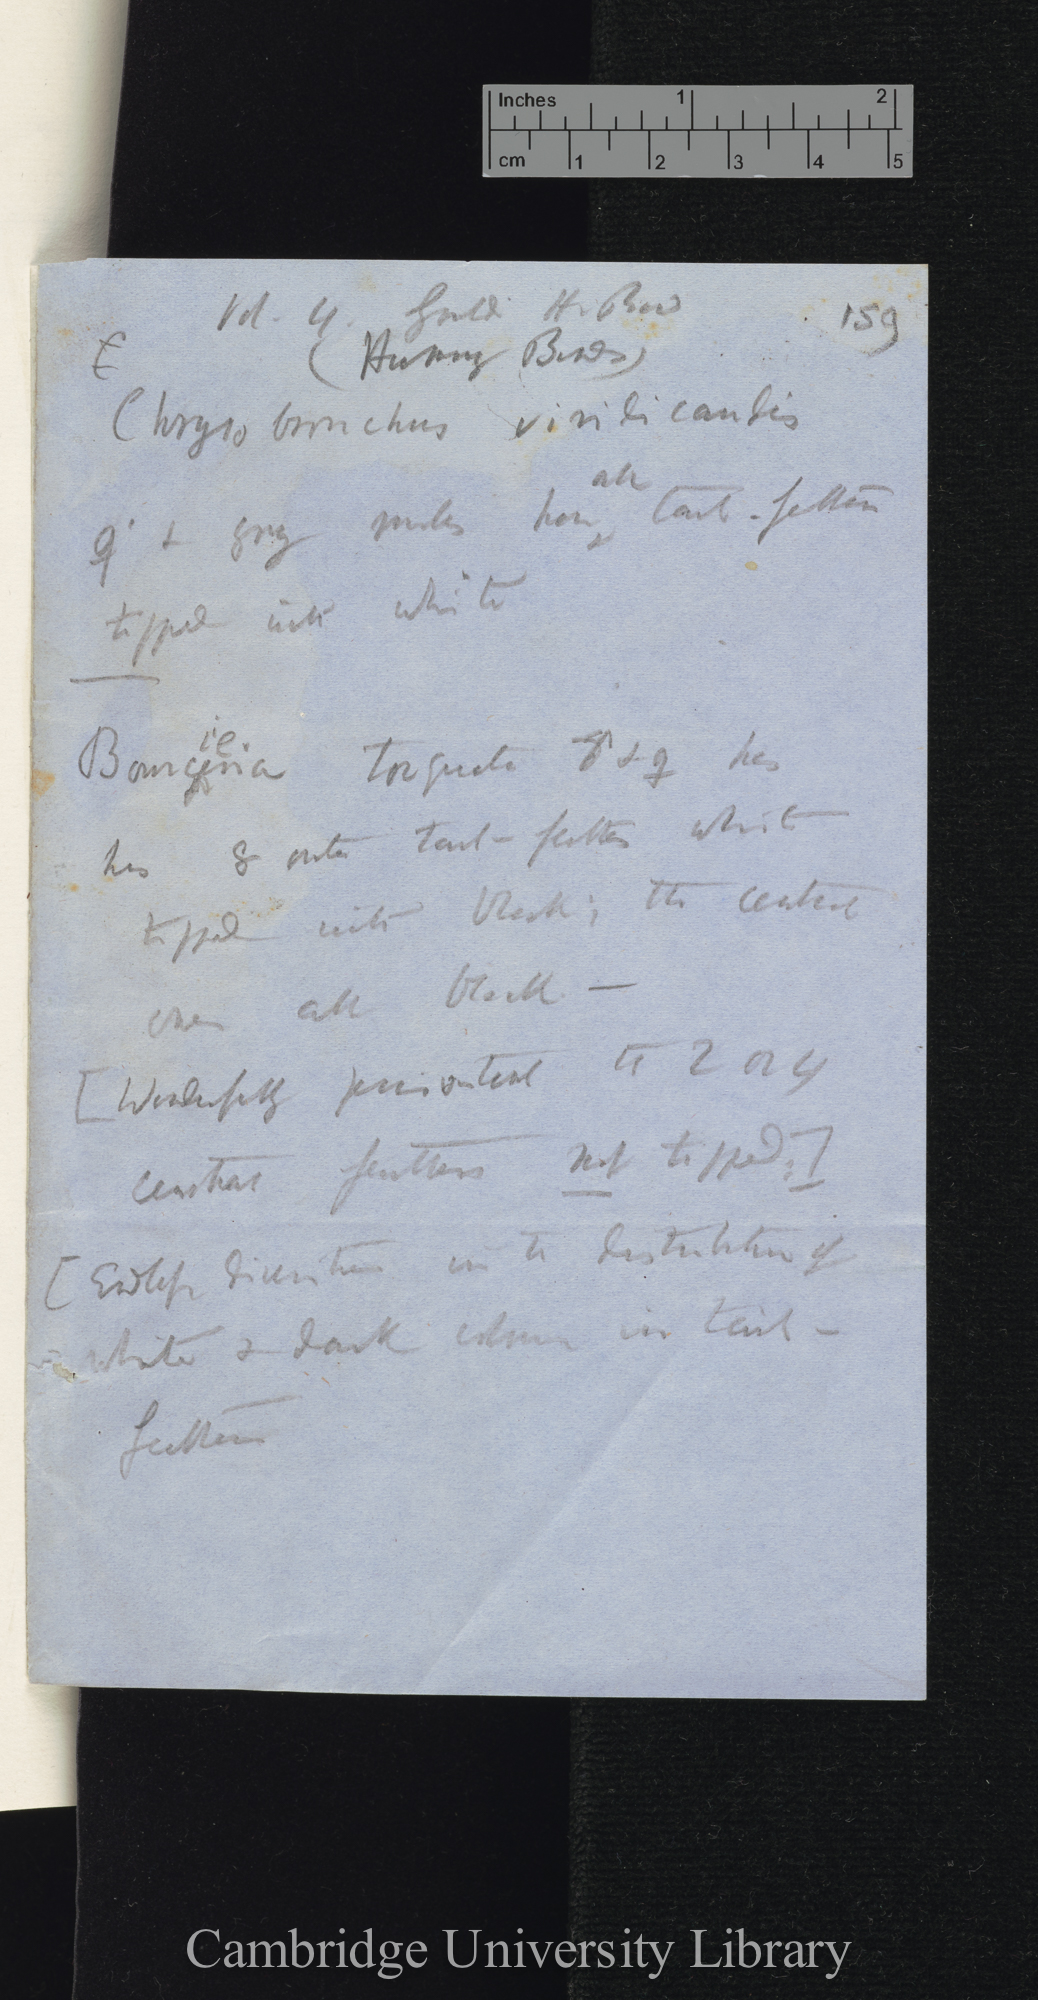 Inches 1 2
cm 1 2 3 4 5
Vol. 4. Gould H. Bird 159
(Humming Birds)
Chrysobronchus viridicaudis
♀ & young males have all tail-feathers
tipped with white
Bourcieria torquata ♂ & ♀ has
has 8 outer tail-feathers white
tipped with black; the central
ones all black —
[Wonderfully persistent the 2 or 4
central feathers not tipped.]
[Endless diversities in the distribution of
white & dark colours in tail-
feathers
Cambridge University Library